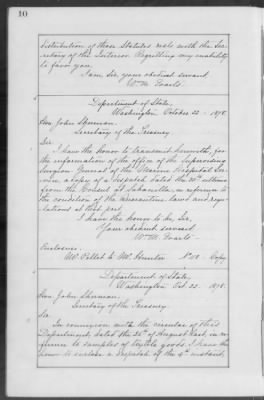 10
distribution of those Statutes rests with the Sec-
retary of the Interior. Regretting my inability
to favor you,
I am, Sir, your obedient servant,
Wm. M. Evarts.
Department of State,
Washington October 22. 1878.
Hon. John Sherman,
Secretary of the Treasury
Sir:
I have the honor to transmit herewith, for
the information of the office of the Supervising
Surgeon General of the Marine Hospital Ser-
vice, a copy of a dispatch dated the 20th ultimo
from the Consul at Sabanilla, in reference to
the condition of the quarantine laws and regu-
lations at that port.
I have the honor to be, Sir,
Your obedient servant
Wm. M. Evarts.
Enclosure.
Mr. Pellet to Mr. Hunter Copy
Department of State,
Washington Oct. 22. 1878.
Hon. John Sherman,
Secretary of the Treasury
Sir:
In connexion with the circular of this
Department, dated the of August last, in re-
ference to samples of textile goods, I have the
honor to enclose a dispatch of the 4th instant,